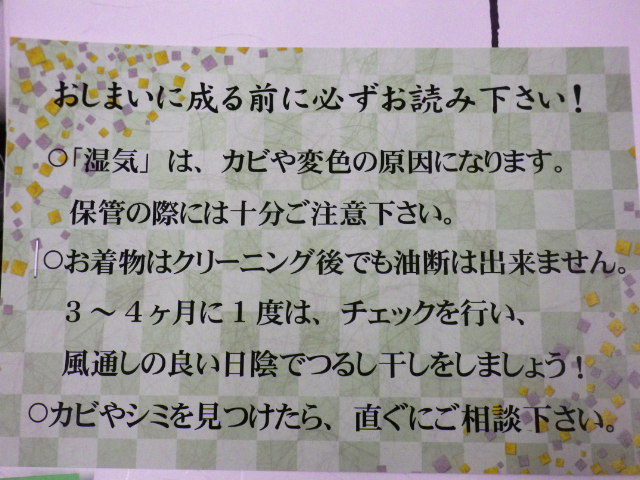 おしまいに成る前に必ずお読み下さい!
○「湿気」は、カビや変色の原因になります。
保管の際には十分ご注意下さい。
○お着物はクリーニング後でも油断は出来ません。
3～4ヶ月に1度は、チェックを行い、
風通しの良い日陰でつるし干しをしましょう!
○カビやシミを見つけたら、直ぐにご相談下さい。